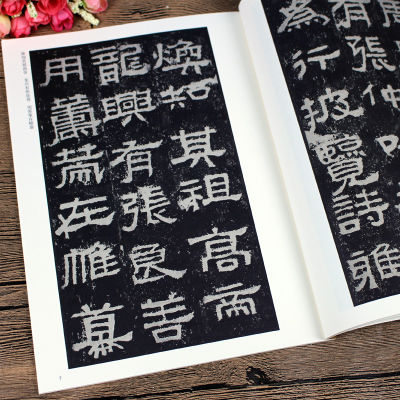 有張仲
爲行披覽詩雅
煥知其祖高帝
龍興有張良善
用籌策在帷幕